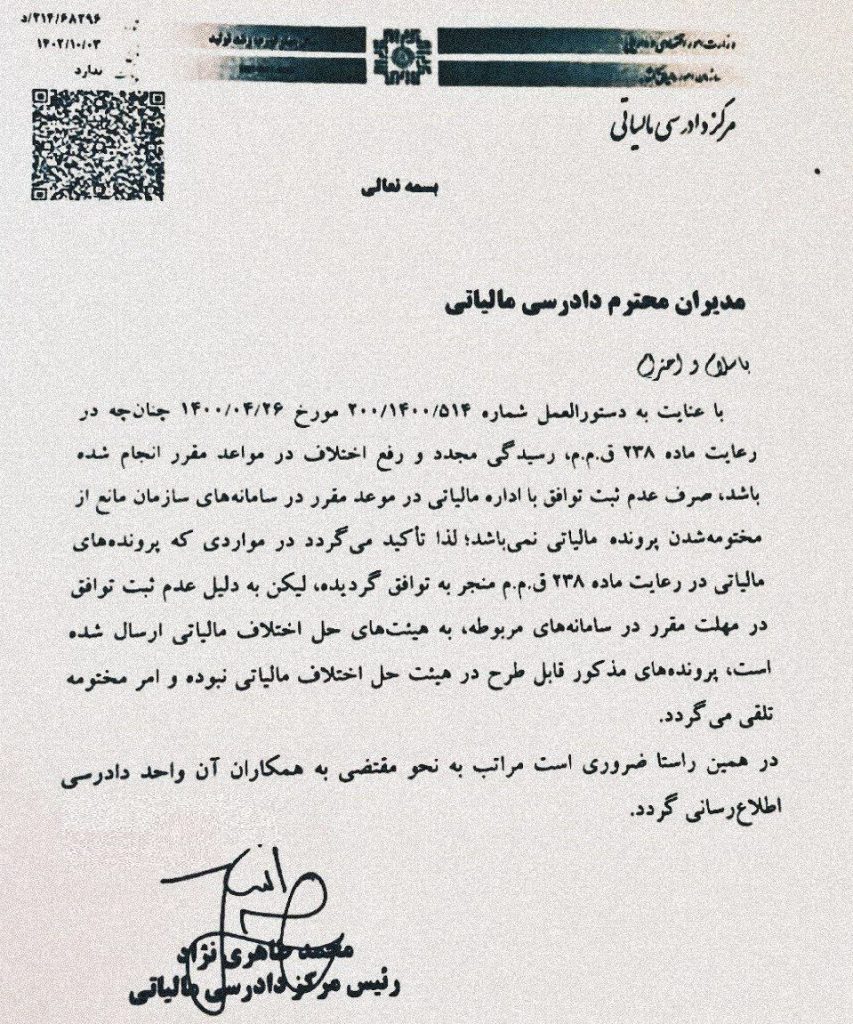 ۲۱۴/۶۸۲۹۶/د
۱۴۰۲/۱۰/۰۳
ندارد
وزارت امور اقتصادی و دارایی
سازمان امور مالیاتی کشور
مرکز دادرسی مالیاتی
بسمه تعالی
مدیران محترم دادرسی مالیاتی
با سلام و احترام
با عنایت به دستورالعمل شماره ۲۰۰/۱۴۰۰/۵۱۴ مورخ ۱۴۰۰/۰۴/۲۶ چنان‌چه در
رعایت ماده ۲۳۸ ق.م.م، رسیدگی مجدد و رفع اختلاف در مواعد مقرر انجام شده
باشد، صرف عدم ثبت توافق با اداره مالیاتی در موعد مقرر در سامانه‌های سازمان مانع از
مختومه‌شدن پرونده مالیاتی نمی‌باشد؛ لذا تأکید می‌گردد در مواردی که پرونده‌های
مالیاتی در رعایت ماده ۲۳۸ ق.م.م منجر به توافق گردیده، لیکن به دلیل عدم ثبت توافق
در مهلت مقرر در سامانه‌های مربوطه، به هیئت‌های حل اختلاف مالیاتی ارسال شده
است، پرونده‌های مذکور قابل طرح در هیئت حل اختلاف مالیاتی نبوده و امر مختومه
تلقی می‌گردد.
در همین راستا ضروری است مراتب به نحو مقتضی به همکاران آن واحد دادرسی
اطلاع‌رسانی گردد.
محمد طاهری نژاد
رئیس مرکز دادرسی مالیاتی